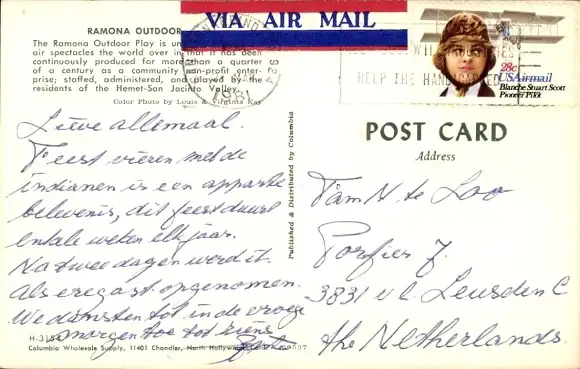 RAMONA OUTDOOR
The Ramona Outdoor Play is
air spectacles the world over in that it has been
continuously produced for more than a quarter
of a century as a community non-profit enter-
prise; staffed, administered, and played by the
residents of the Hemet-San Jacinto Valley.
Color Photo by Louis & Virginia Kay
VIA AIR MAIL
HELP THE HANDICAPPED
1981
28c
USAirmail
Blanche Stuart Scott
Pioneer Pilot
Lieve allemaal.
Feest vieren met de
indianen is een aparte
belevenis, dit feest duurt
entale weken elk jaar.
Na twee dagen werd ik
als eregast opgenomen.
We dansten tot in de vroege
morgen toe tot ziens
H-3154
Columbia Wholesale Supply, 11401 Chandler, North Hollywood
Published & Distributed by Columbia
POST CARD
Address
Fam N te Loo
Porfier 7
3831 Leusden C
the Netherlands.